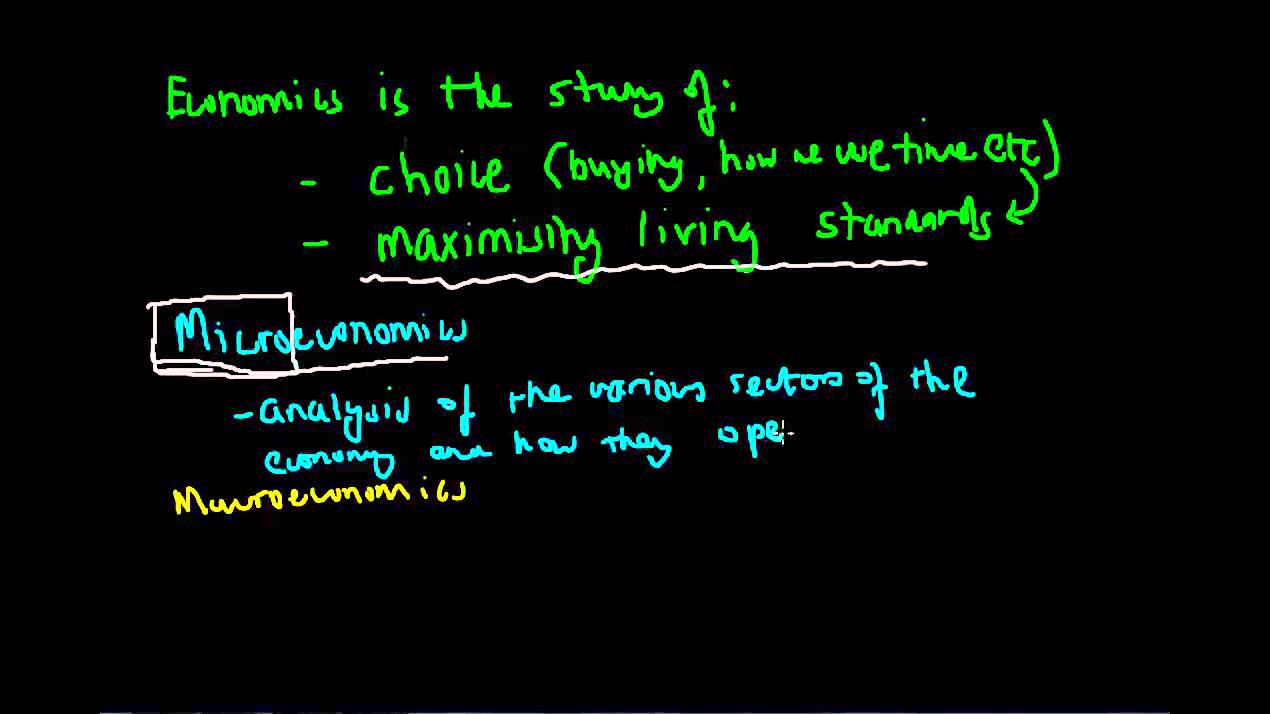 Economics is the study of:
- choice (buying, how we use time etc)
- maximising living standards
Microeconomics
- analysis of the various sectors of the
economy and how they ope
Macroeconomics